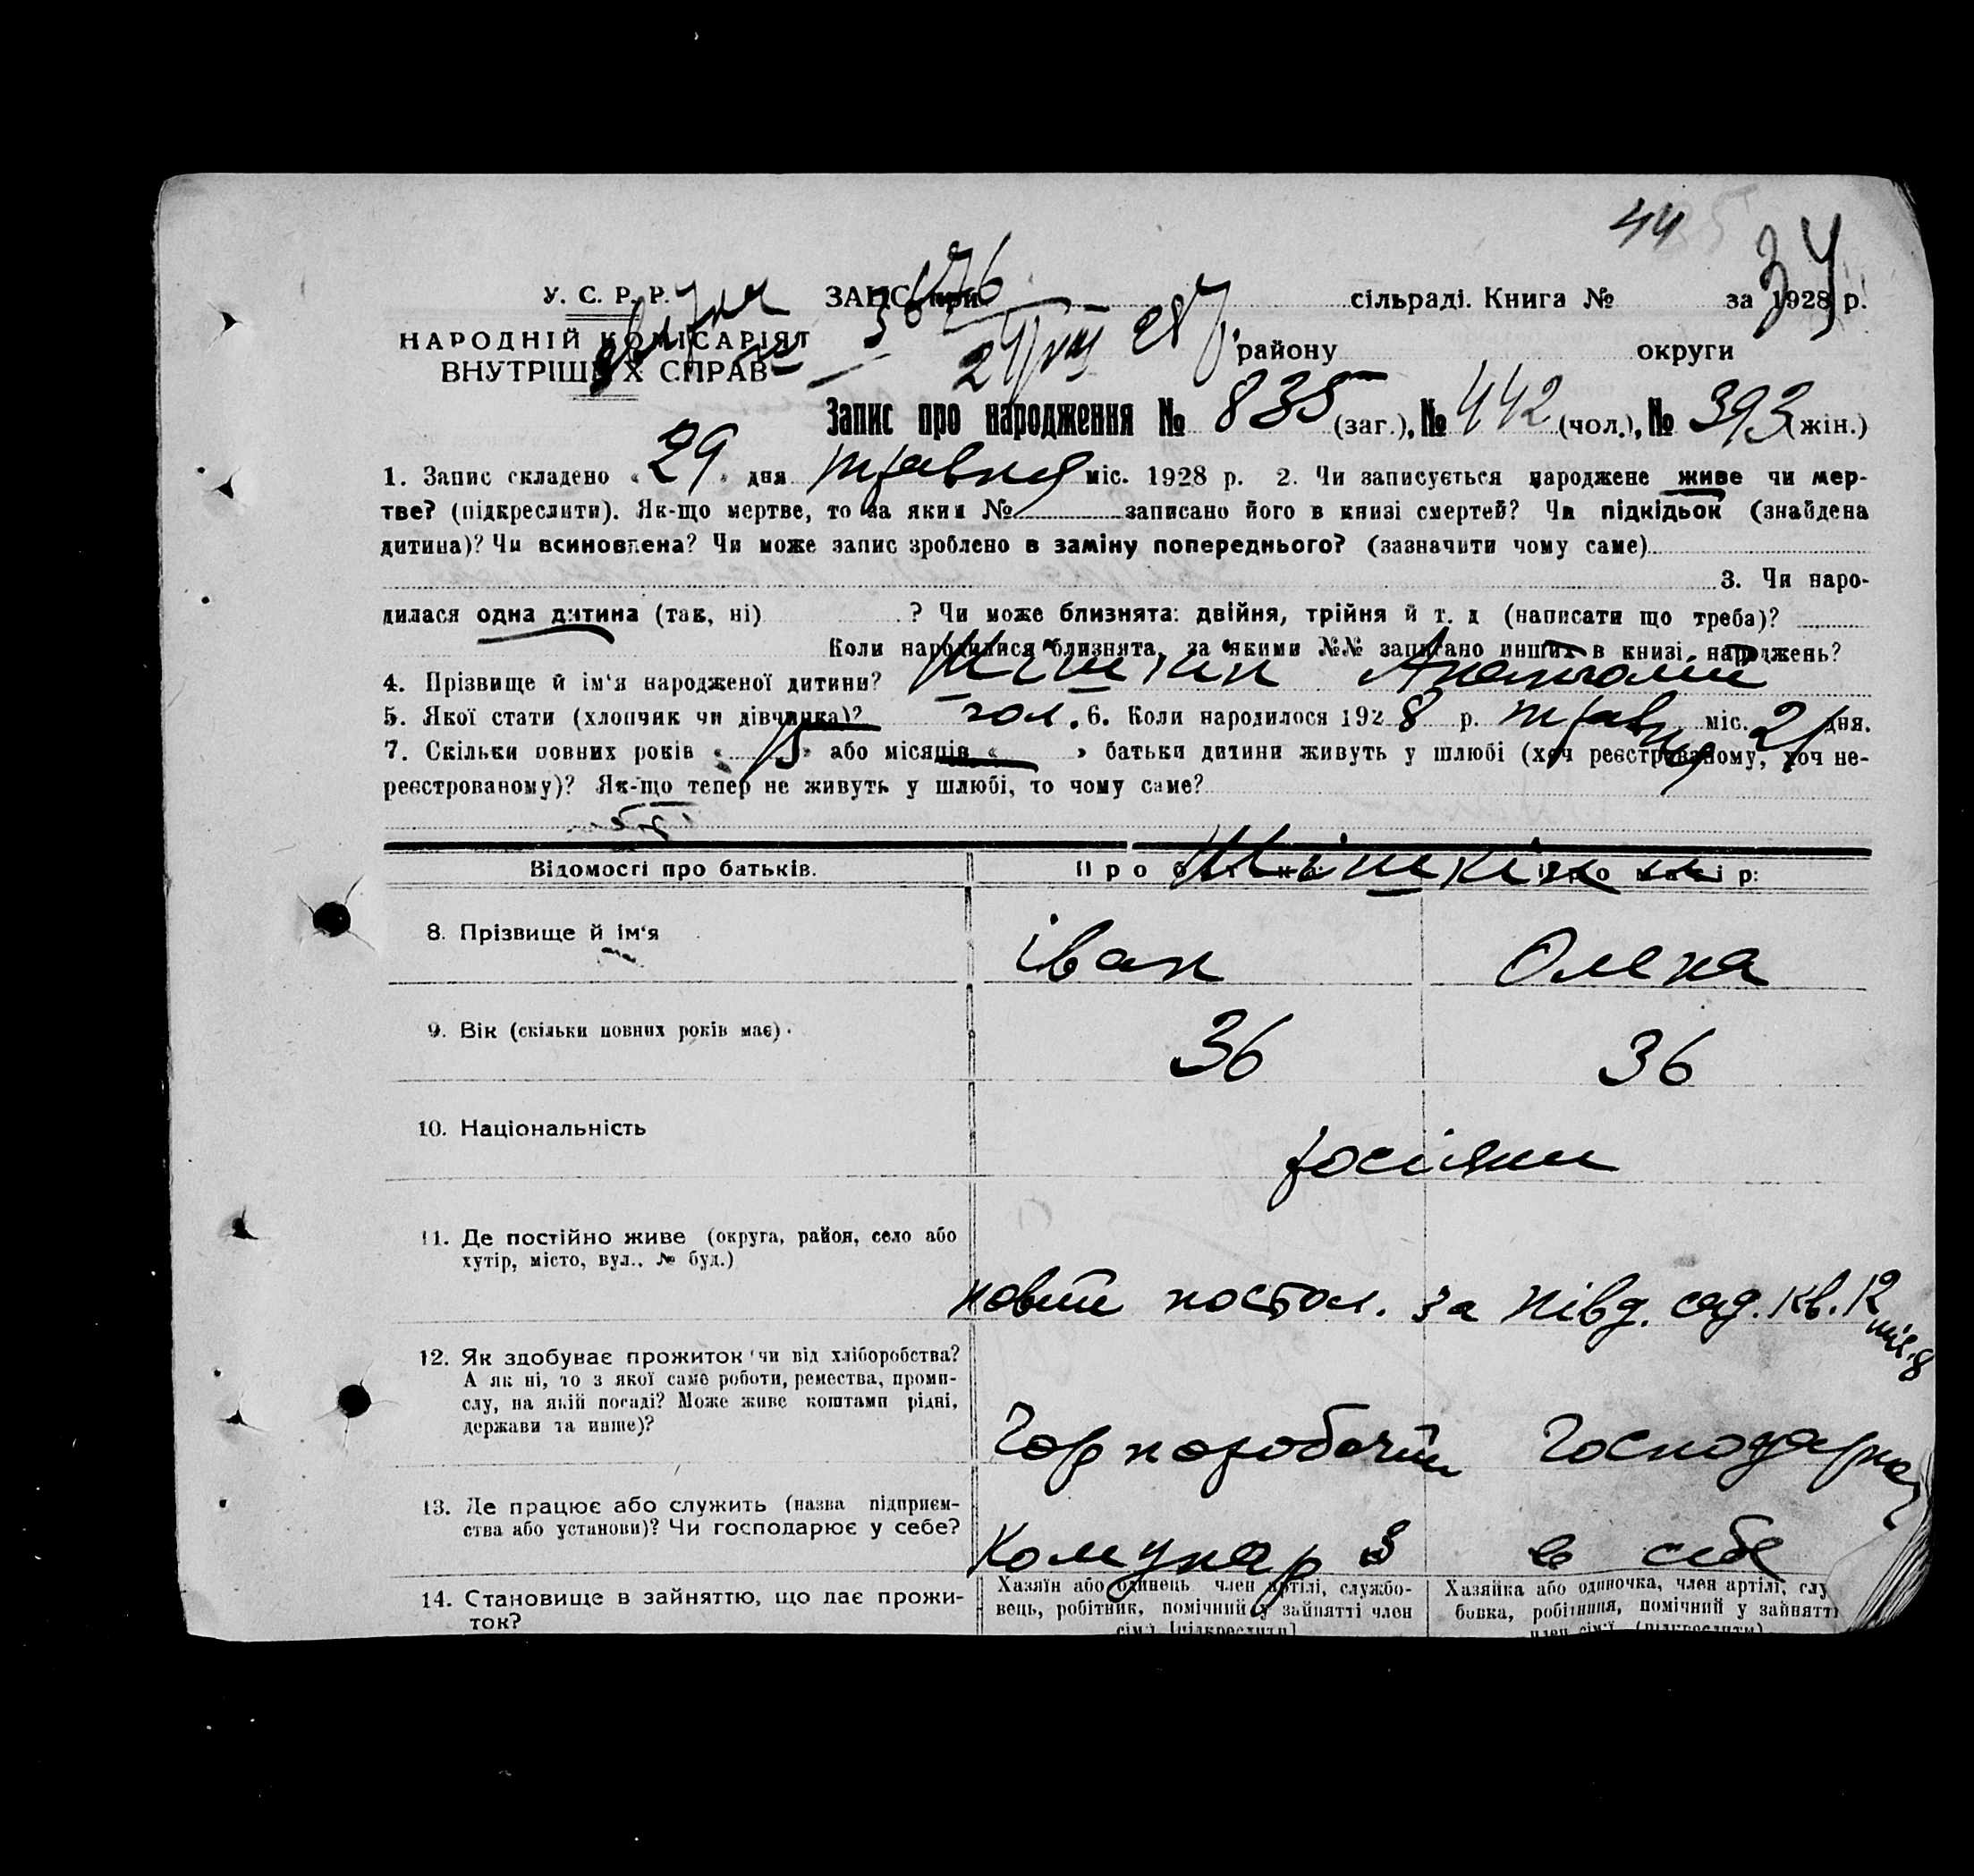 44
34
У. С. Р. Р. ЗАГС при 3676 сільраді. Книга № за 1928 р.
НАРОДНІЙ КОМІСАРІЯТ
ВНУТРІШНІХ СПРАВ 28 р. району округи
Запис про народження № 835 (заг.), № 442 (чол.), № 393 (жін.)
1. Запис складено « 29 » дня травня міс. 1928 р. 2. Чи записується народжене живе чи мер-
тве? (підкреслити). Як-що мертве, то за яким № записано його в книзі смертей? Чи підкідьок (знайдена
дитина)? Чи всиновлена? Чи може запис зроблено в заміну попереднього? (зазначити чому саме)
3. Чи наро-
дилася одна дитина (так, ні) ? Чи може близнята: двійня, трійня й т. д (написати що треба)?
Коли народилися близнята, за якими №№ записано инших в книзі народжень?
4. Прізвище й ім‘я народженої дитини? Шишкин Анатолий
5. Якої стати (хлопчик чи дівчинка)? чол. 6. Коли народилося 1928 р. травня міс. 21 дня.
7. Скільки повних років « 15 » або місяців « » батьки дитини живуть у шлюбі (хоч реєстрованому, хоч не-
реєстрованому)? Як-що тепер не живуть у шлюбі, то чому саме?
Відомості про батьків. Про батька: Про матір:
Шишкіни
8. Прізвище й ім‘я Іван Олена
9. Вік (скільки повних років має) 36 36
10. Національність росіяни
11. Де постійно живе (округа, район, село або
хутір, місто, вул., № буд.)
новий посьол. за півд. сад. кв. 12
12. Як здобуває прожиток чи від хліборобства?
А як ні, то з якої саме роботи, ремества, проми-
слу, на якій посаді? Може живе коштами рідні,
держави та инше)?
Чорноробочий Господарка
13. Де працює або служить (назва підприєм-
ства або установи)? Чи господарює у себе?
Комунар 3 в себе
14. Становище в зайняттю, що дає прожи-
ток?
Хазяїн або одинець член артілі, службо-
вець, робітник, помічний у зайнятті член
сім'ї (підкреслити)
Хазяйка або одиночка, член артілі, слу
бовка, робітниця, помічний у зайнятті
член сім'ї (підкреслити)